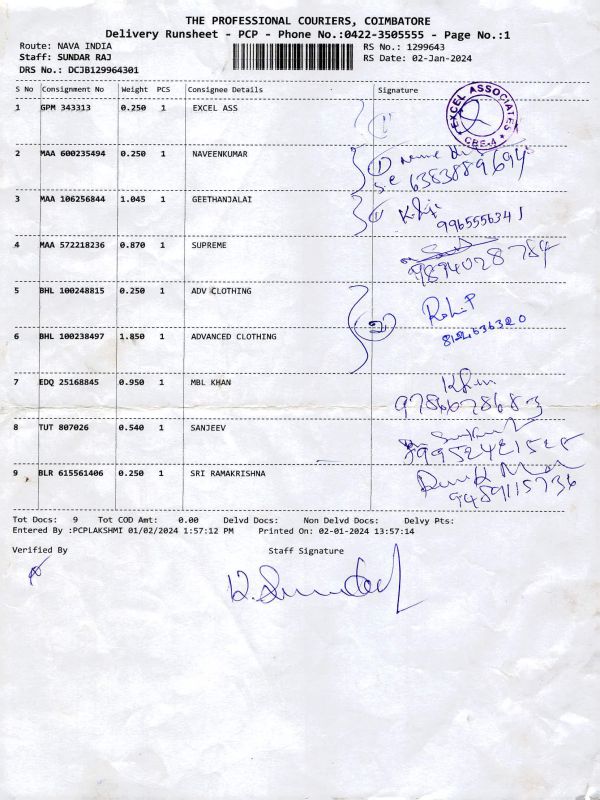 THE PROFESSIONAL COURIERS, COIMBATORE
Delivery Runsheet - PCP - Phone No.:0422-3505555 - Page No.:1
Route: NAVA INDIA RS No.: 1299643
Staff: SUNDAR RAJ RS Date: 02-Jan-2024
DRS No.: DCJB129964301
S No Consignment No Weight PCS Consignee Details Signature
1 GPM 343313 0.250 1 EXCEL ASS
EXCEL ASSOCIATES CBE-4
2 MAA 600235494 0.250 1 NAVEENKUMAR
6383889694
3 MAA 106256844 1.045 1 GEETHANJALAI
9965556341
4 MAA 572218236 0.870 1 SUPREME
9894028784
5 BHL 100248815 0.250 1 ADV CLOTHING
2
6 BHL 100238497 1.850 1 ADVANCED CLOTHING
7 EDQ 25168845 0.950 1 MBL KHAN
8 TUT 807026 0.540 1 SANJEEV
9 BLR 615561406 0.250 1 SRI RAMAKRISHNA
9489115736
Tot Docs: 9 Tot COD Amt: 0.00 Delvd Docs: Non Delvd Docs: Delvy Pts:
Entered By :PCPLAKSHMI 01/02/2024 1:57:12 PM Printed On: 02-01-2024 13:57:14
Verified By Staff Signature